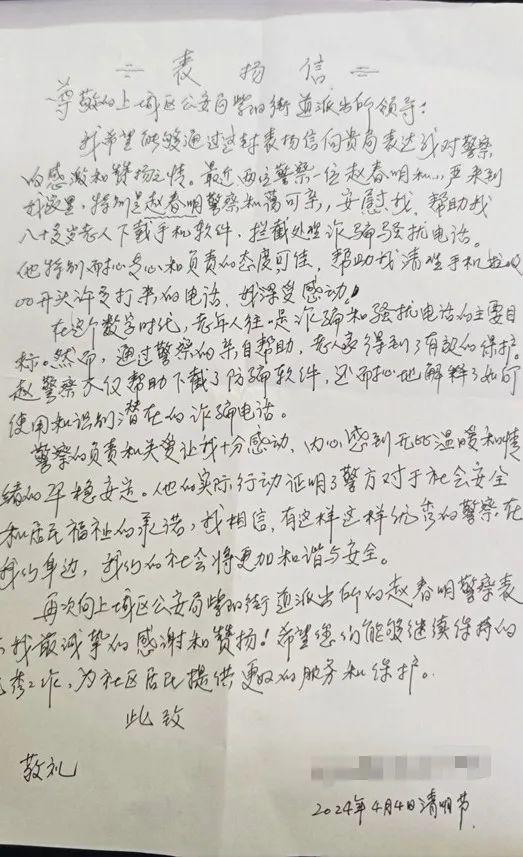 表扬信
尊敬的上城区公安局紫阳街道派出所领导:
我希望能够通过这封表扬信向贵局表达我对警察
的感激和赞扬之情。最近两位警察一位赵春明和严来到
我这里,特别是赵春明警察和蔼可亲,安慰我,帮助我
八十多岁老人下载手机软件,拦截处些诈骗骚扰电话。
他特别而耐心是心和负责的态度可佳,帮助我清醒手机
00开头许多打来的电话,我深受感动!
在这个数字时代,老年人往是诈骗和骚扰电话的主要目
标。然而,通过警察的亲自帮助,老人家得到了有效的保护。
赵警察不仅帮助下截了防骗软件,还而心地解释了如何
使用和识别潜在的诈骗电话。
警察的负责和关爱让我十分感动,内心感到无比温暖和情
绪的平稳安定。他的实际行动证明了警方对于社会安全
和居民福祉的承诺,我相信,有这样这样优秀的警察在
我们身边,我们的社会将更加和谐与安全。
再次向上城区公安局紫阳街道派出所的赵春明警察表
示我最诚挚的感谢和赞扬!希望您们能够继续保持的
优秀工作,为社区居民提供更好的服务和保护。
此致
敬礼
2024年4月4日清明节